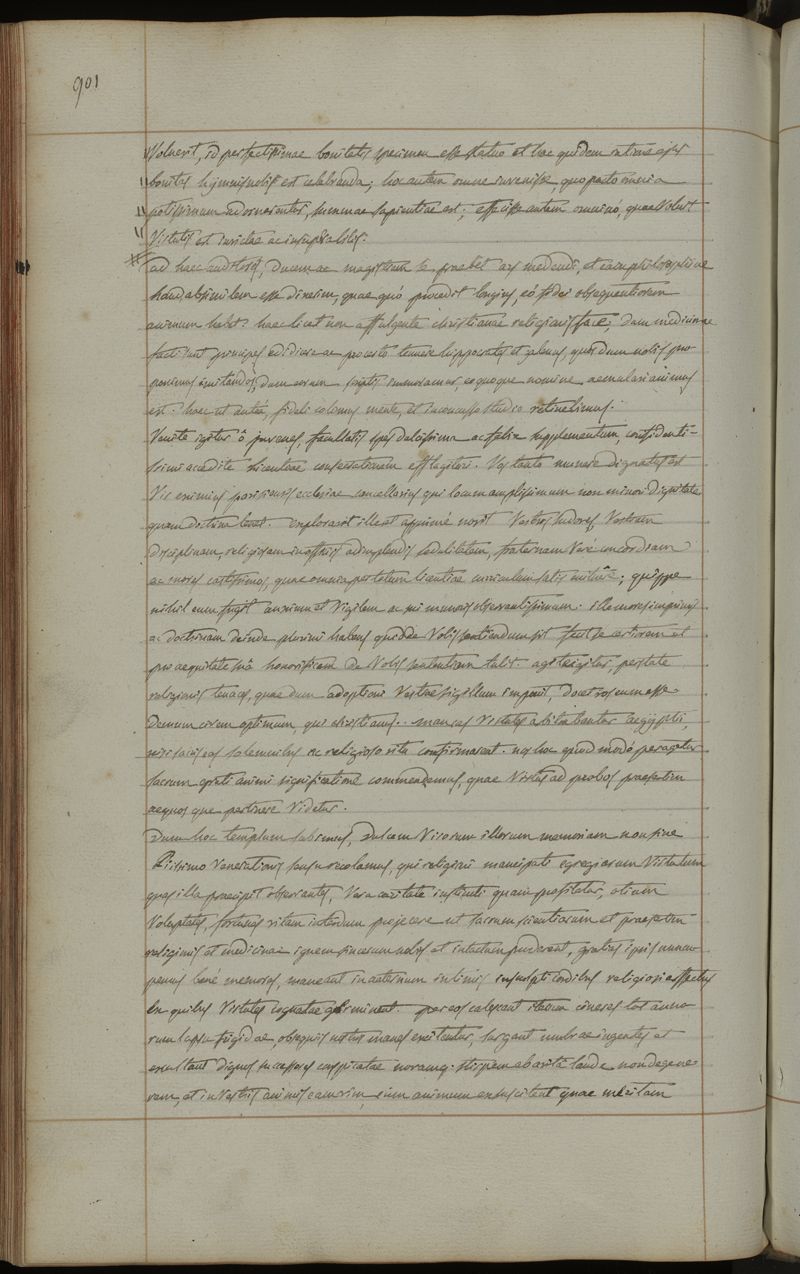 901
Voluerit, id perfectissimae bonitatis specimen esse statuo et hac quidem ratione ejus
bonitas hymnis nobis est celebranda; hoc autem omne invenisse, quo pacto omnia
potissimum adornarentur, summae sapientiae est; effecisse autem omninó, quae Voluit
Virtutis est invictae ac insuperabilis.
ad haec auditores, Ducem ac magistrum se praebet ars medendi, et eam philosophiae
haud absimilem esse dixerim, quae quó procedit longius, eó fidei obsequentiorem
animum habet: haec licet non affulgente christianae religionis face, dum medicinae
facti sunt principes edidicere ac pro certo tenuere hippocrates et galenus, quos dum nobis pro-
ponimus imitandos, dum eorum scriptis immoramur, eo quoque nomine aemulari animus
est. haec ut antea, fideli colemus mente, et inconcusso studio retinebimus.
Venite igitur ô juvenes, facultatis spes dulcissima ac felix supplementum, confidenti-
ssimi accedite licentiae consecrationem efflagitari. Vos tanto munere dignatus est
Vir eximius parisiensis ecclesiae cancellarius qui locum amplissimum non minori dignitate
quam doctrina tenet. exploravit ille at apprimé novit Vestros sudores, Vestram
disciplinam, religiosam in officiis adimplendis sedulitatem, fraternam Veré concordiam
ac mores castissimos, quae omnia per totum licentiae curriculum satis enituêre; quippe
nihil eum fugit annum et Vigilem ac sui muneris observantissimum. ille mores imprimis
ac doctrinam deinde plurimi habens quid de Vobis sentiendum sit fecit se certiorem et
pro aequitate suâ honorificam de Vobis sententiam tulit. agite igitur, perstate
religionis tenaces, quae dum adoptioni Vestrae sigillum imponit, docet vos eum esse
demum civem optimum, qui christianus. mancas Virtutes arbitrabantur aegyptii,
nisi sacris eas solemnibus ac religioso ritu confirmarent. nos hoc quod modó peragetur
sacrum grati animi significatione commendemus, quae Virtus ad probos praesertim
aequosque pertinere Videtur.
Dum hoc templum subimus, dulcem Virorum illorum memoriam non sine
Piissimo Venerationis sensu recolamus, qui religioni mancipati egregiarum Virtutum
quas illa praecipit observantes, Vera caritate instincti quam profitebantur, otium
Voluptates, fortunas vitam interdum projecere ut sacrum scientiarum et praesertim
religionis et medicinae ignem sincerum nobis et intactum proderent, gratias ipsis nunc
penus bené memores, maneant in aeternum intimis insculpti cordibus religiosi affectus
ex quibus Virtutes cognatae germinent. per eos calescant iterum cineres tot anno-
rum lapsu frigidae, obsequiis nostris manes excitentur, surgant umbrae ingentes et
exultent dignos successores conspicatae novamq. stirpem ab avitâ laude non degene-
rem, et in Vestris animis eam vim, eum animum exsuscitent quae meritam